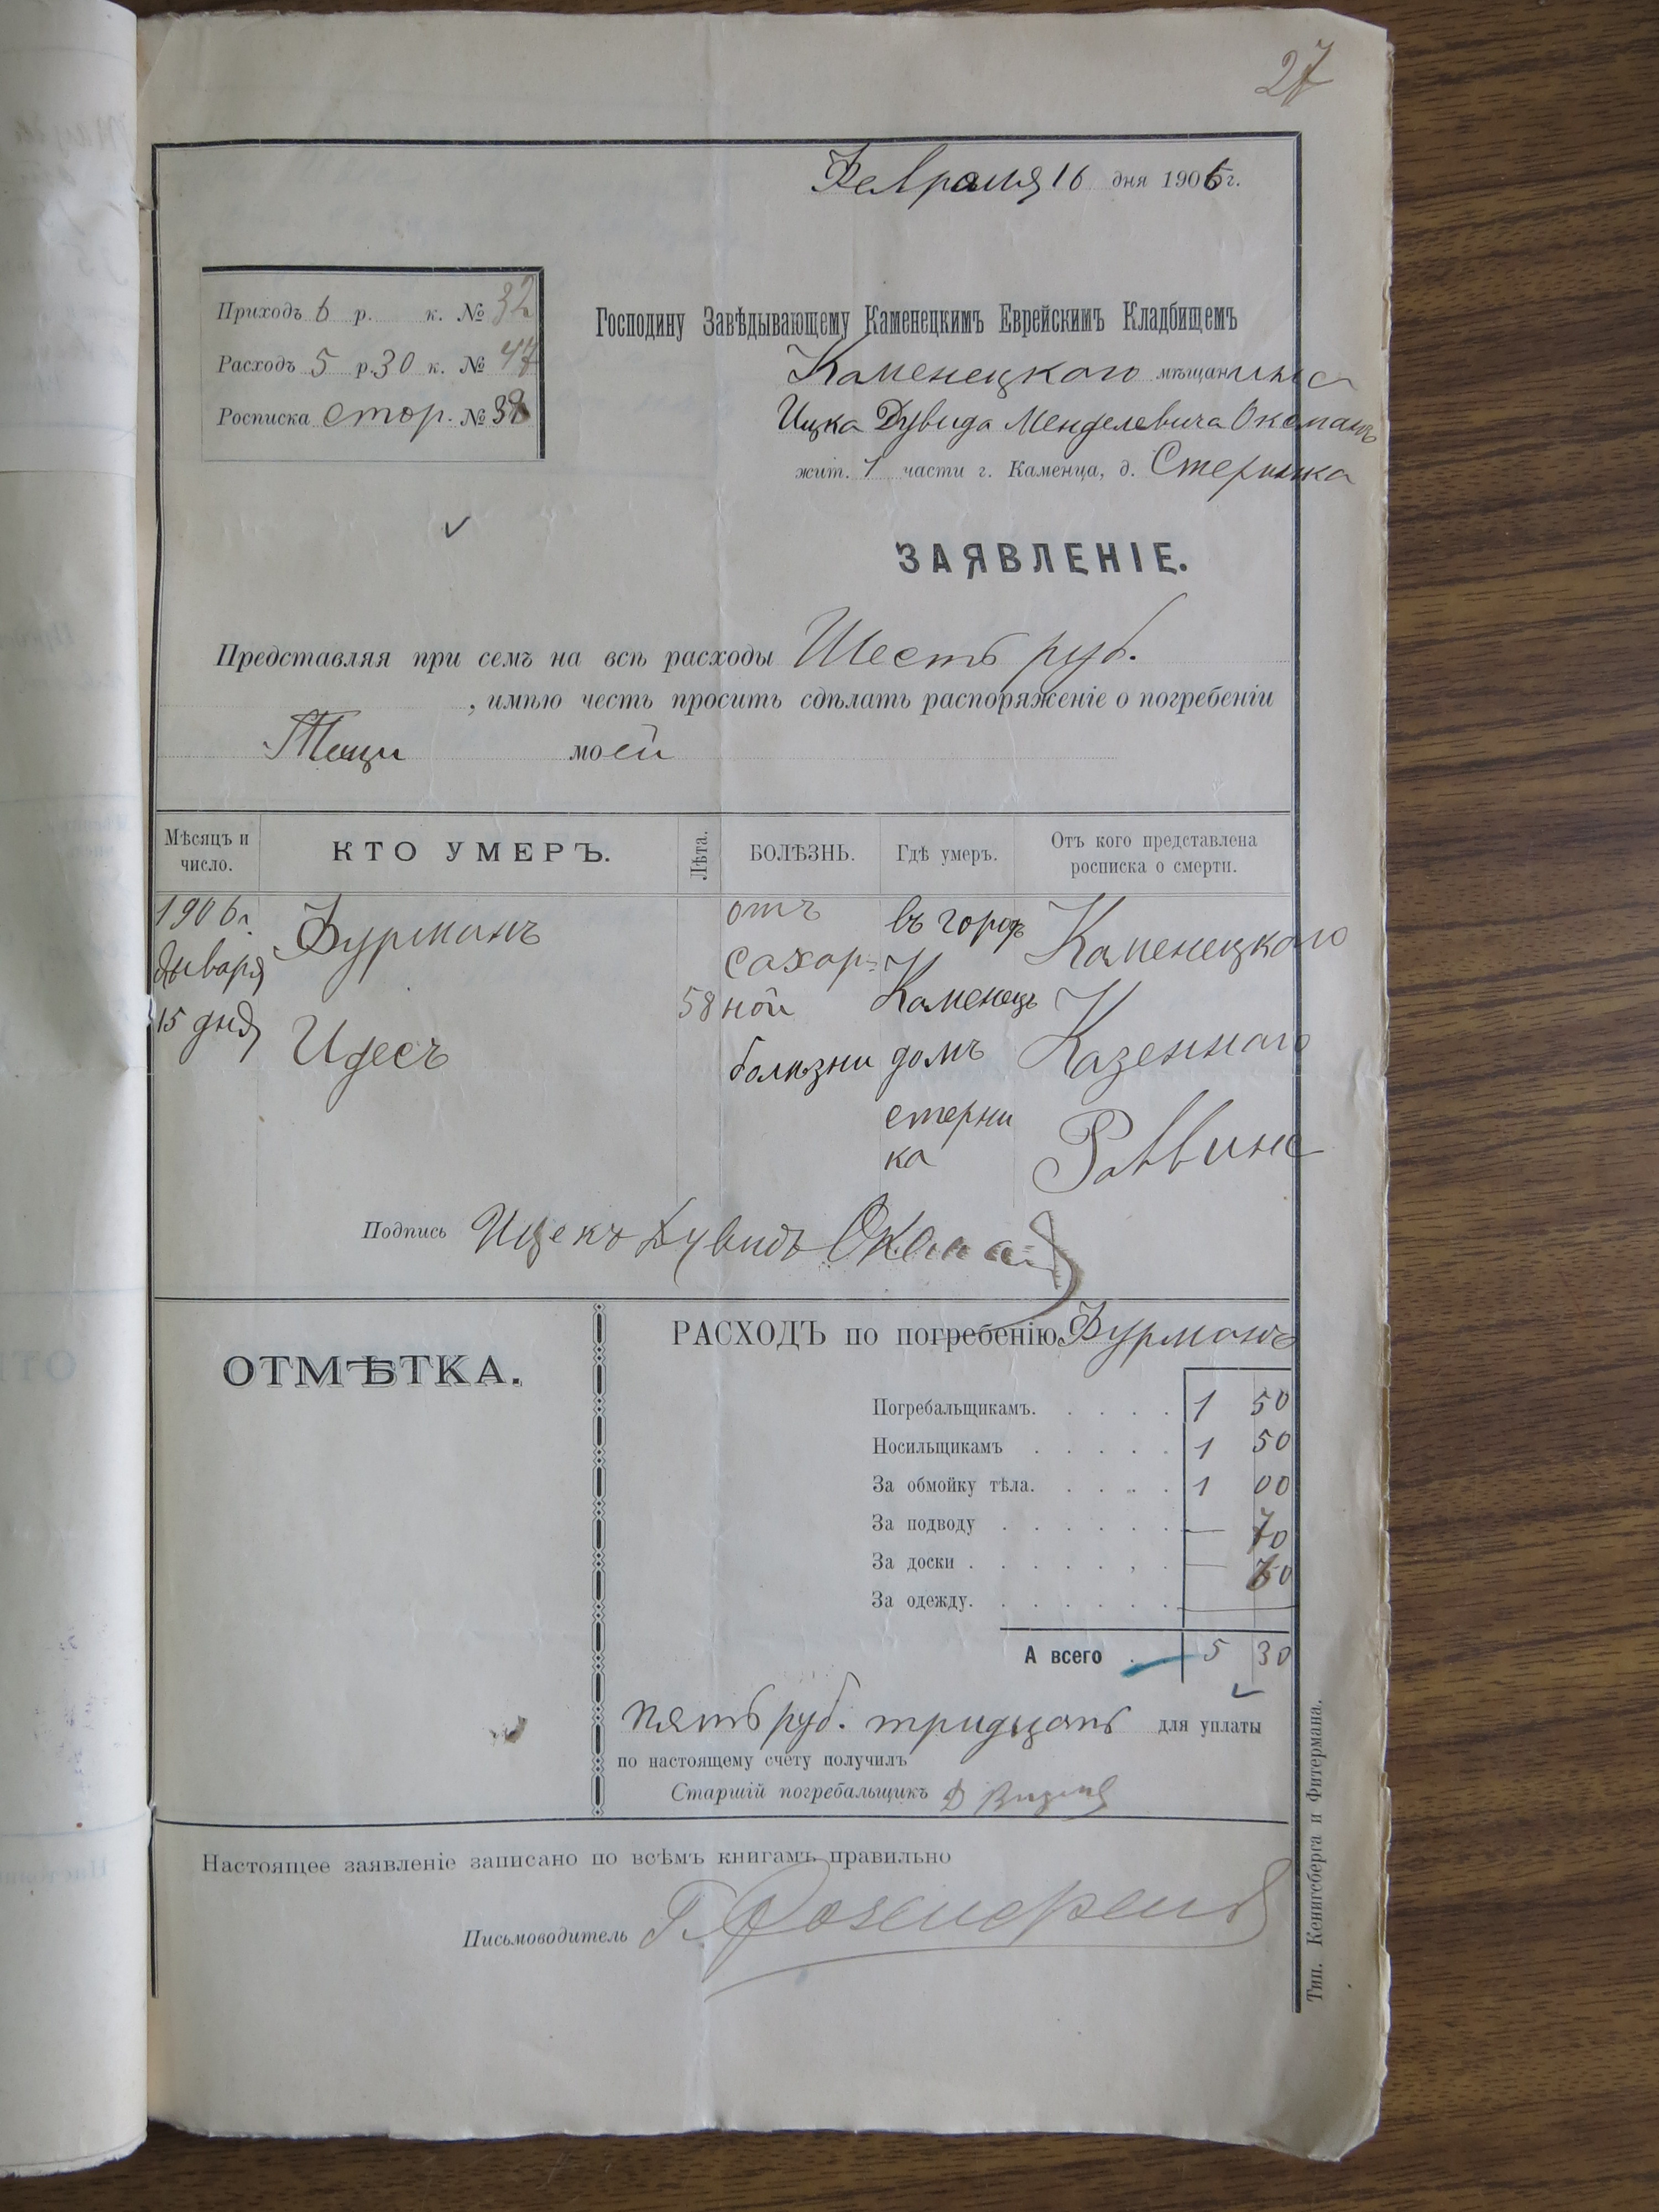 27
Февраля 16 дня 1906 г.
Приходъ 6 р. к. № 32
Расходъ 5 р. 30 к. № 47
Росписка стор. № 38
Господину Завѣдывающему Каменецкимъ Еврейскимъ Кладбищемъ
Каменецкого мѣщанина
Ицка Дувида Менделевича Оксманъ
жит. 1 части г. Каменца, д. Стерника
ЗАЯВЛЕНІЕ.
Представляя при семъ на всѣ расходы Шесть руб.
, имѣю честь просить сдѣлать распоряженіе о погребеніи
Тещи моей
Мѣсяцъ и число.
КТО УМЕРЪ.
Лѣта.
БОЛѢЗНЬ.
Гдѣ умеръ.
Отъ кого представлена росписка о смерти.
1906 г.
января
15 дня
Фурманъ
Идесъ
58
отъ
сахар-
ной
болѣзни
въ городѣ
Каменецъ
домъ
стерни
ка
Каменецкого
Казеннаго
Раввина
Подпись Ицекъ Дувидъ Оксман
ОТМѢТКА.
РАСХОДЪ по погребенію Фурманъ
Погребальщикамъ. 1 50
Носильщикамъ 1 50
За обмойку тѣла. 1 00
За подводу — 70
За доски — 60
За одежду.
А всего 5 30
пять руб. тридцать для уплаты
по настоящему счету получилъ
Старшій погребальщикъ Д
Настоящее заявленіе записано по всѣмъ книгамъ правильно
Письмоводитель Г.
Тип. Кенигсберга и Фитермана.